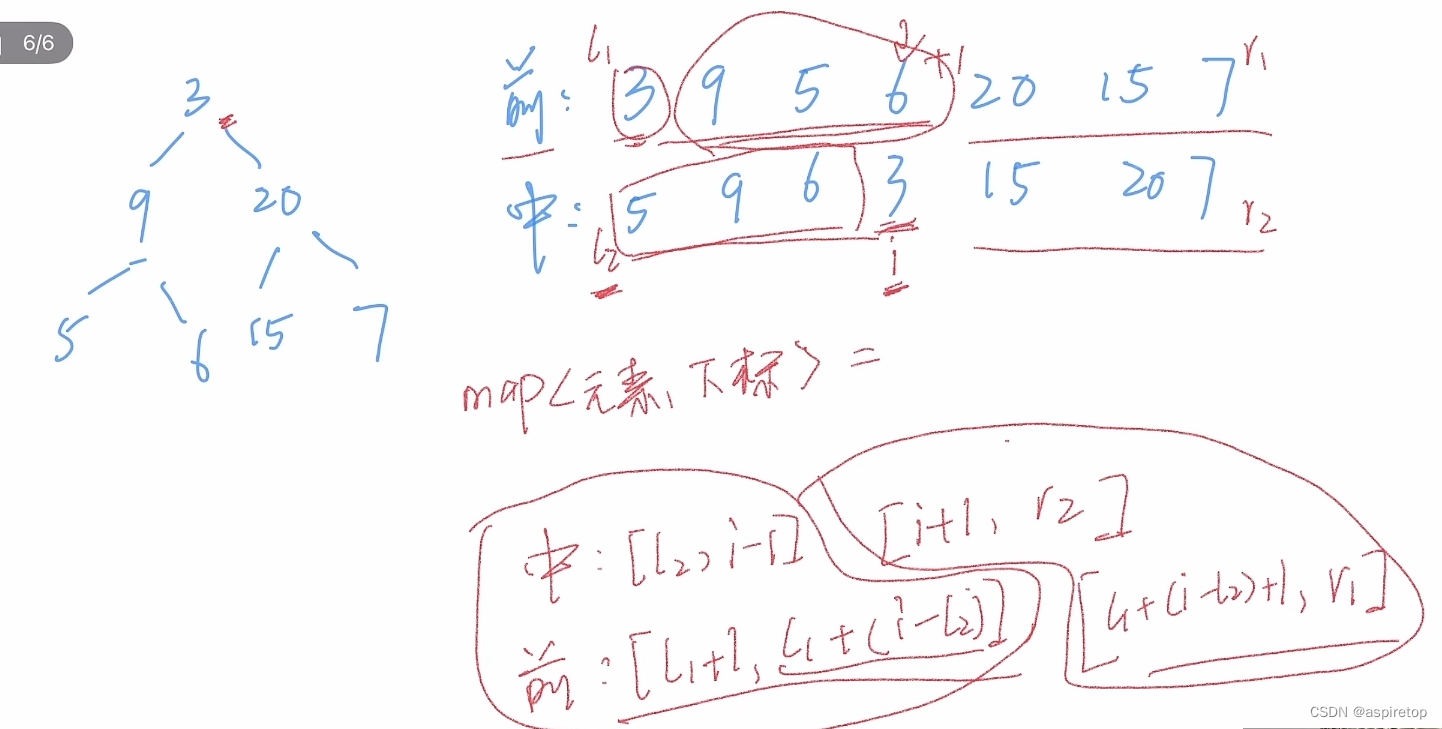 6/6
3
9 20
5 6 15 7
l1 +1 r1
前: 3 9 5 6 20 15 7
中: 5 9 6 3 15 20 7
l2 i r2
map<元素、下标> =
中: [l2, i-1] [i+1, r2]
前: [l1+1, l1+(i-l2)] [l1+(i-l2)+1, r1]
CSDN @aspiretop